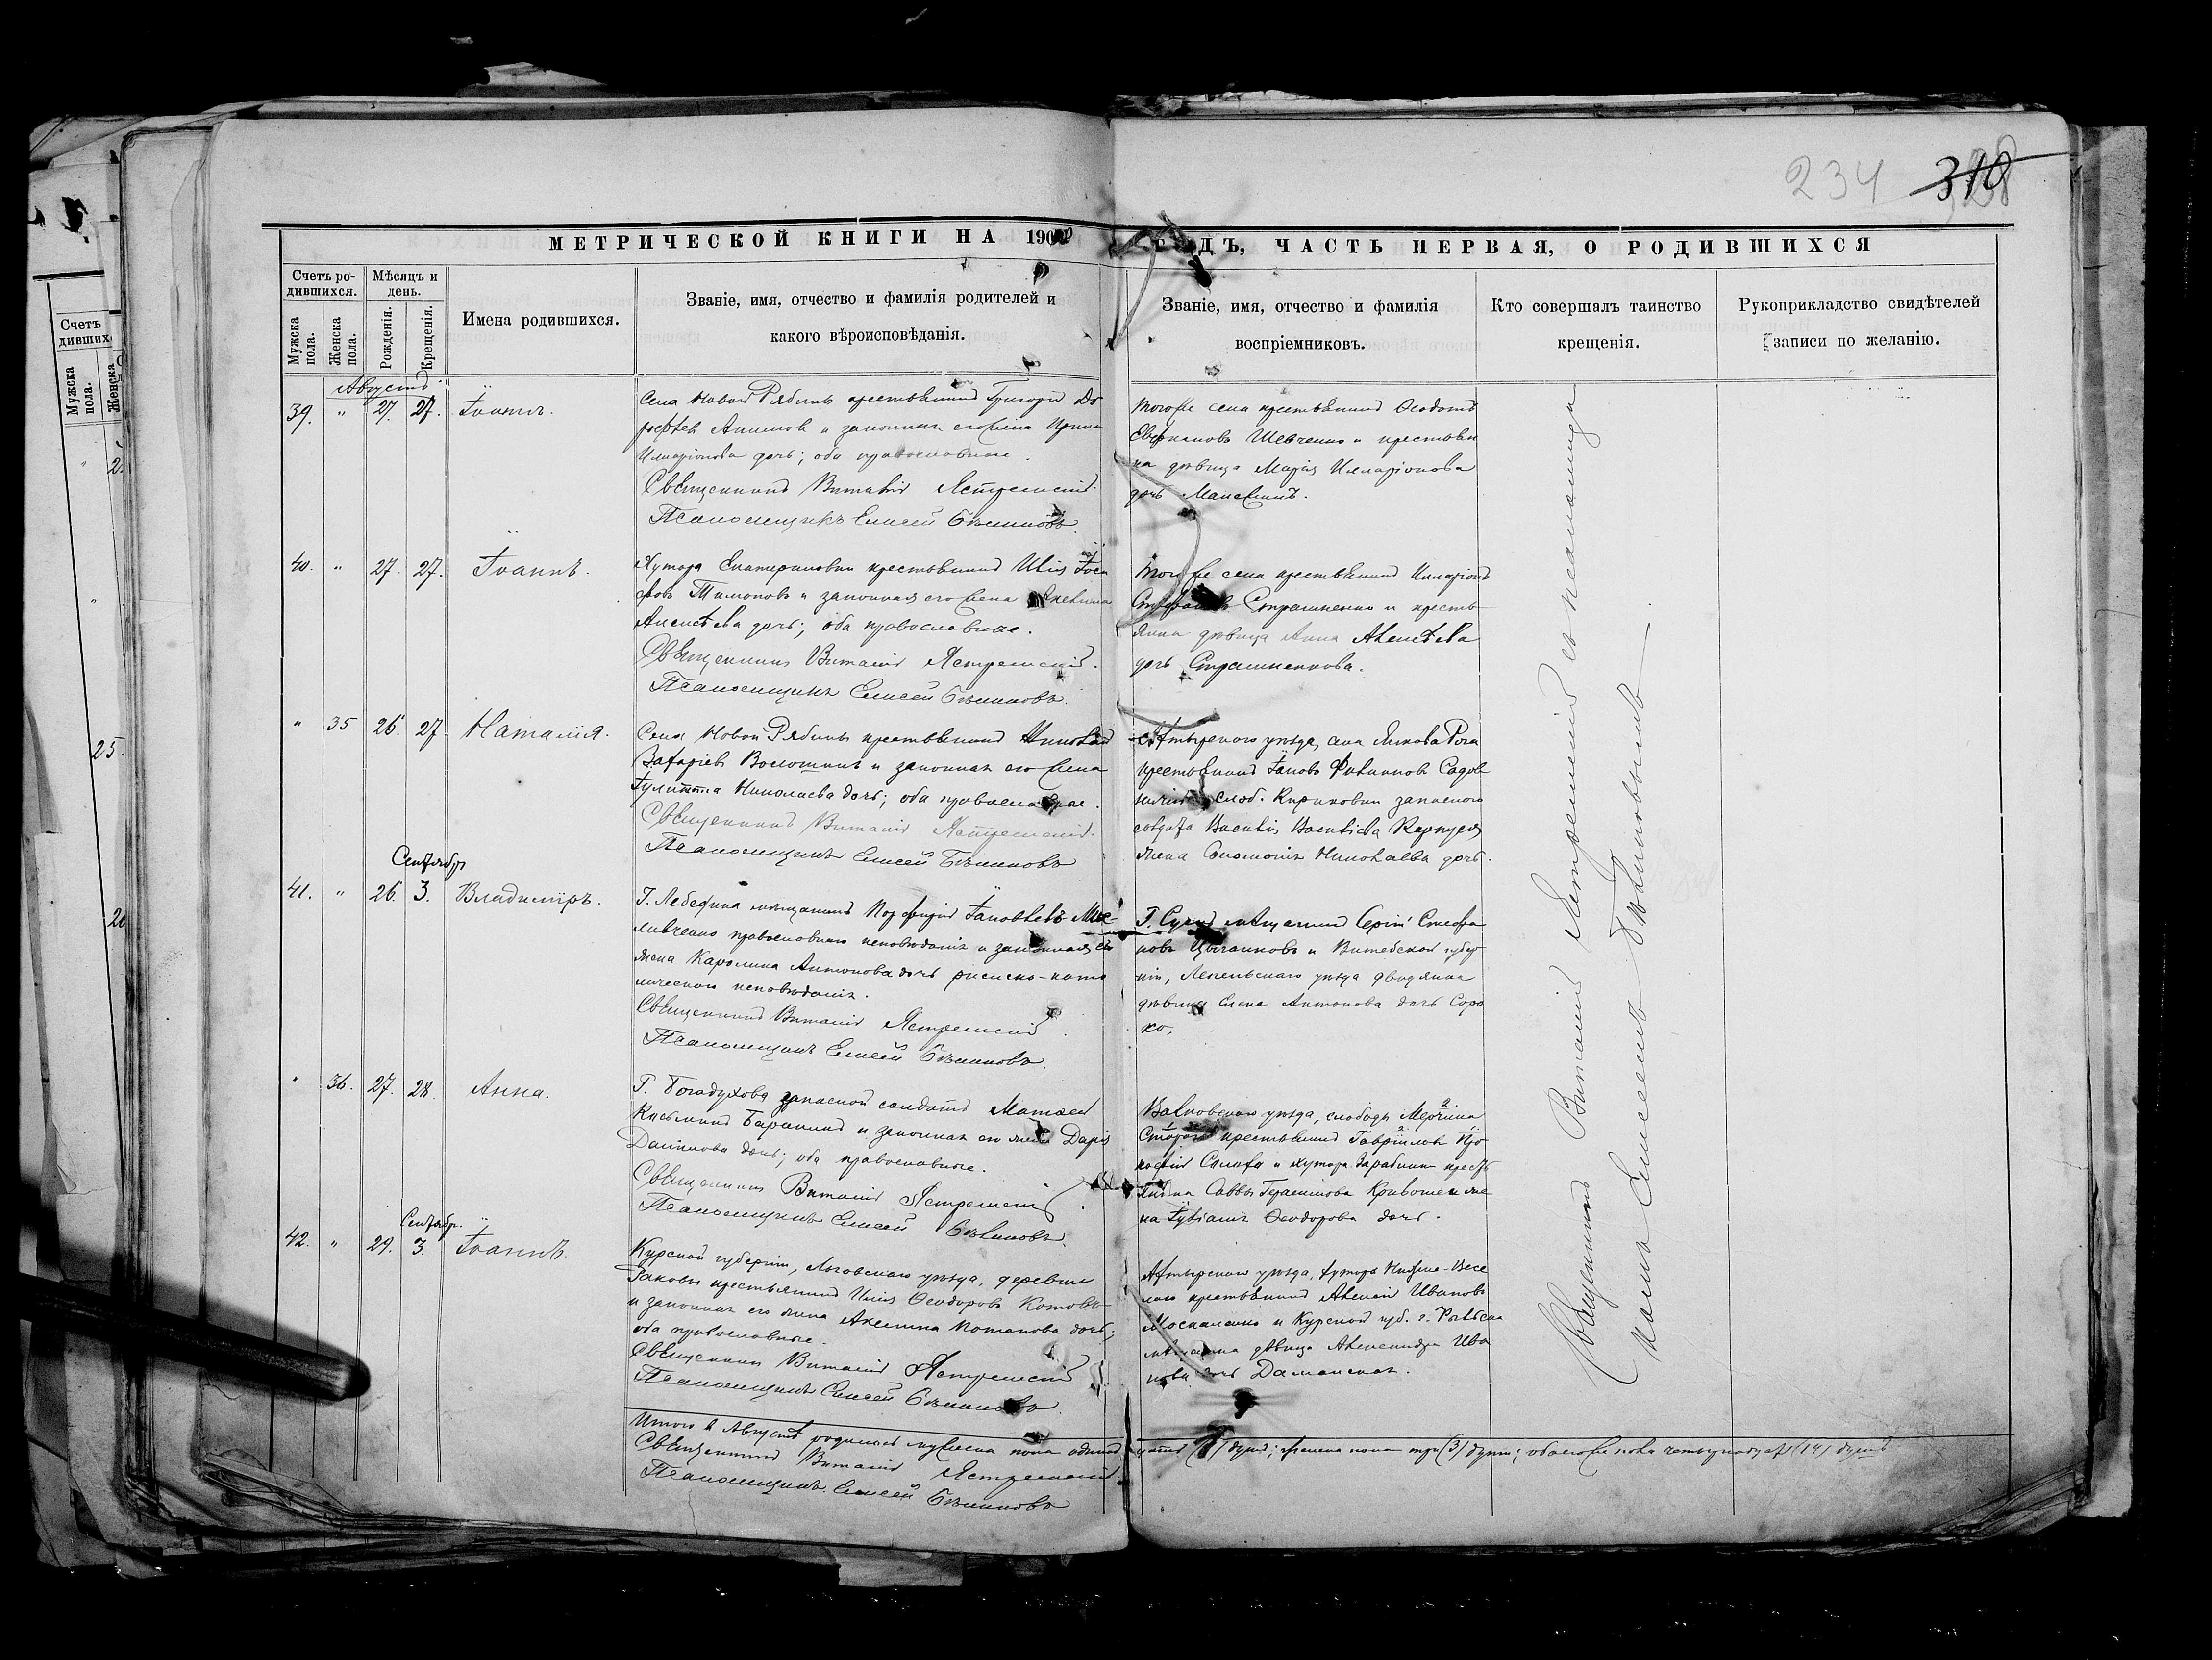 234 310
МЕТРИЧЕСКОЙ КНИГИ НА 190
ГОДЪ, ЧАСТЬ ПЕРВАЯ, О РОДИВШИХСЯ
Счетъ ро-
дившихся.
Мужска
пола.
Женска
пола.
Мѣсяцъ и
день.
Рожденія.
Крещенія.
Имена родившихся.
Званіе, имя, отчество и фамилія родителей и
какого вѣроисповѣданія.
Званіе, имя, отчество и фамилія
воспріемниковъ.
Кто совершалъ таинство
крещенія.
Рукоприкладство свидѣтелей
записи по желанію.
Счетъ
дивших
Мужска
пола.
Женска
Августъ
39. " 27. 27. Іоаннъ.
Села Новой Рябины крестьянинъ Григорій До
рофеевъ и законная его жена Ирина
Илларіонова дочь; оба православные.
Священникъ Виталій Ястремскій.
Псаломщикъ Елисей
Того же села крестьянинъ Ѳеодотъ
Шевченко и крестьян
ка дѣвица Марія Илларіонова
дочь
40. " 27. 27. Іоаннъ.
Хутора Екатериновки крестьянинъ Илія Іоси
фовъ Тимоновъ и законная его жена
Алексѣева дочь; оба православные.
Священникъ Виталій Ястремскій.
Псаломщикъ Елисей
Того же села крестьянинъ Илларіонъ
Стефановъ Страшненко и кресть-
янка дѣвица Анна Алексѣева
дочь Страшненкова.
" 35 26. 27. Наталія.
Села Новой Рябины крестьянинъ Николай
Захаріевъ Волошинъ и законная его жена
Іулитта Николаева дочь; оба православные.
Священникъ Виталій Ястремскій.
Псаломщикъ Елисей
Ахтырскаго уѣзда, села Янкова Рога
крестьянинъ Іаковъ Филипповъ Садов
ничій слоб. Кириковки запаснаго
солдата Василія Васильева
жена Соломонія Николаева дочь.
Сентябр
41. " 26. 3. Владиміръ.
Г. Лебедина мѣщанинъ Порфирій Іаковлевъ
православнаго исповѣданія и законная его
жена Каролина Антонова дочь римско-като
лическаго исповѣданія.
Священникъ Виталій Ястремскій.
Псаломщикъ Елисей
Г. Сумъ мѣщанинъ Сергій Стефа
новъ Цыганковъ и Витебской губер
ніи, Лепельскаго уѣзда дворянка
дѣвица Елена Антонова дочь Соро
ко.
" 36. 27. 28. Анна.
Г. Богодухова запасной солдатъ Матѳей
Касьяновъ и законная его жена Дарія
Даніилова дочь; оба православные.
Священникъ Виталій Ястремскій.
Псаломщикъ Елисей
Валковскаго уѣзда, слободы Мерчика
Стараго крестьянинъ Гавріилъ Про
кофіевъ и хутора кресть
янина Саввы Герасимова же
на Іуліанія Ѳеодорова дочь.
Сентябр.
42. " 29. 3. Іоаннъ.
Курской губерніи, Льговскаго уѣзда, деревни
Раковы крестьянинъ Илія Ѳеодоровъ Котовъ
и законная его жена Акилина Потапова дочь;
оба православные.
Священникъ Виталій Ястремскій
Псаломщикъ Елисей
Ахтырскаго уѣзда, хутора Весе
лаго крестьянинъ Алексій Ивановъ
Москаленко и Курской губ. г. Рыльска
мѣщанка дѣвица Александра Ива
нова дочь Даманская.
Священникъ Виталій Ястремскій съ псаломщи
комъ Елисеемъ
Итого въ Августѣ родилось мужеска пола одинад
цать душъ; женска пола три (3) души; обоего же пола четырнадцать (14) душъ
Священникъ Виталій Ястремскій
Псаломщикъ Елисей